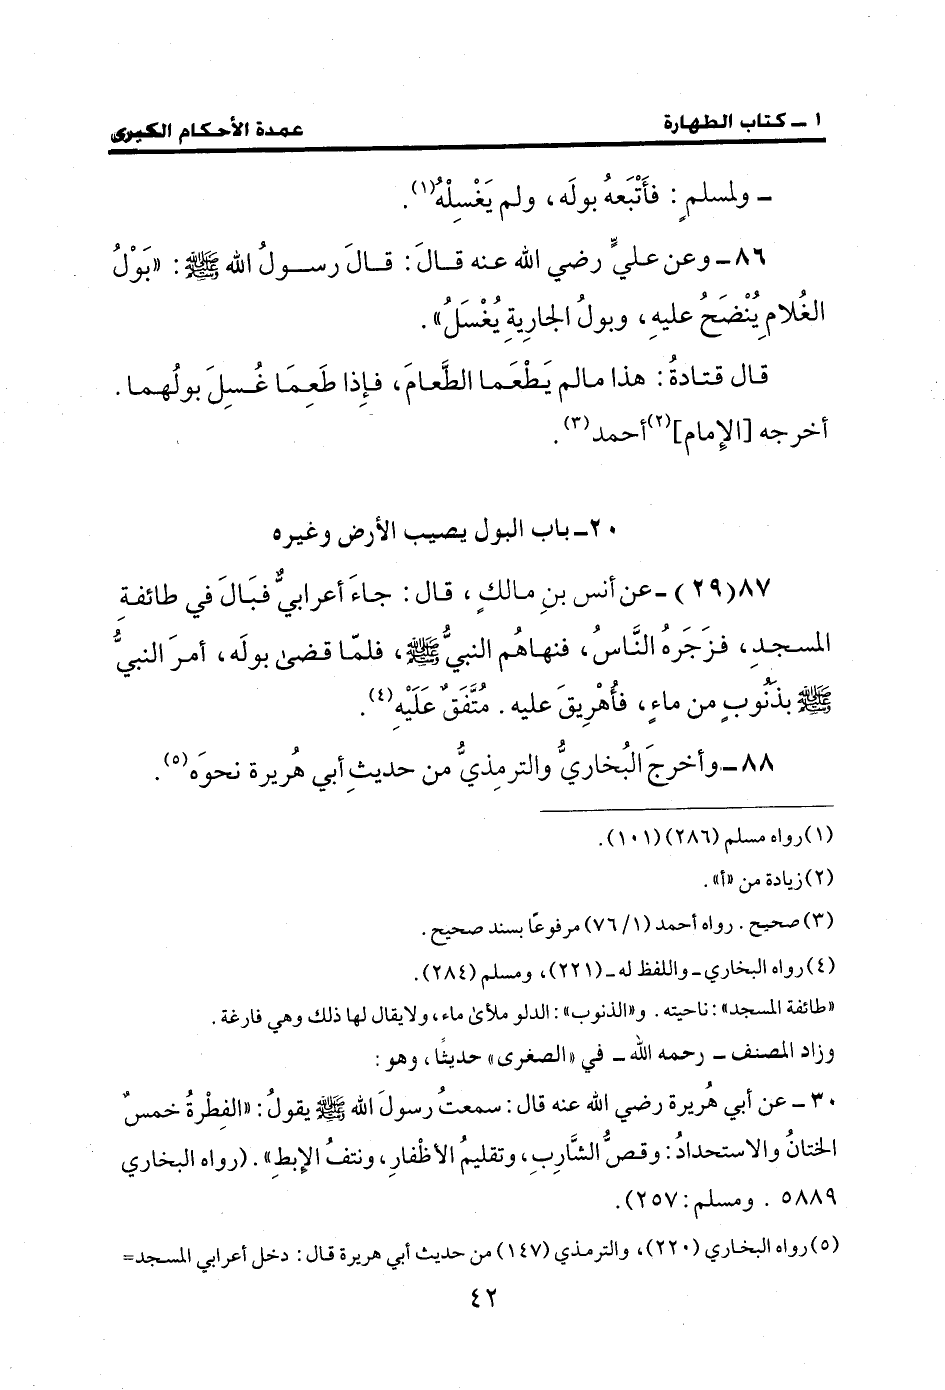 ١ ــ كتاب الطهارة
عمدة الأحكام الكبرى
ـ ولمسلمٍ : فأَتْبَعهُ بولَه، ولم يَغْسِلْهُ(١).
٨٦ ــ وعن عليٍّ رضي الله عنه قـالَ: قـالَ رسـولُ الله ﷺ: «بَوْلُ
الغُلامِ يُنْضَحُ عليهِ، وبولُ الجاريةِ يُغْسَلُ».
قال قتادةُ: هذا مالم يَطْعَما الطَّعامَ، فإِذا طَعِمَا غُسلَ بولُهما.
أخرجه [الإمام](٢) أحمد(٣).
٢٠ ـ باب البول يصيب الأرض وغيره
٨٧(٢٩) ـ عن أنس بنِ مالكٍ، قال: جاءَ أعرابيٌّ فبَالَ في طائفةِ
المسجدِ، فزَجَرهُ النَّاسُ، فنهاهُم النبيُّ ﷺ، فلمّا قضىٰ بولَه، أمرَ النبيُّ
ﷺ بذَنُوبٍ من ماءٍ، فأُهْرِيقَ عليه. مُتَّفَقٌ عَلَيْهِ(٤).
٨٨ ــ وأخرجَ البُخاريُّ والترمذيُّ من حديثِ أبي هُريرة نحوَه(٥).
(١) رواه مسلم (٢٨٦) (١٠١).
(٢) زيادة من «أ».
(٣) صحيح. رواه أحمد (١/ ٧٦) مرفوعًا بسند صحيح.
(٤) رواه البخاري ـ واللفظ له ـ (٢٢١)، ومسلم (٢٨٤).
«طائفة المسجد»: ناحيته. و«الذنوب»: الدلو ملأىٰ ماء، ولا يقال لها ذلك وهي فارغة.
وزاد المصنف ـ رحمه الله ـ في «الصغرى» حديثًا، وهو:
٣٠ ـ عن أبي هُريرة رضي الله عنه قال: سمعتُ رسولَ الله ﷺ يقولُ: «الفِطْرةُ خمسٌ
الختانُ والاستحدادُ: وقصُّ الشَّاربِ، وتقليمُ الأظْفارِ، ونتفُ الإبطِ». (رواه البخاري
٥٨٨٩ . ومسلم: ٢٥٧).
(٥) رواه البخاري (٢٢٠)، والترمذي (١٤٧) من حديث أبي هريرة قال: دخل أعرابي المسجد=
٤٢